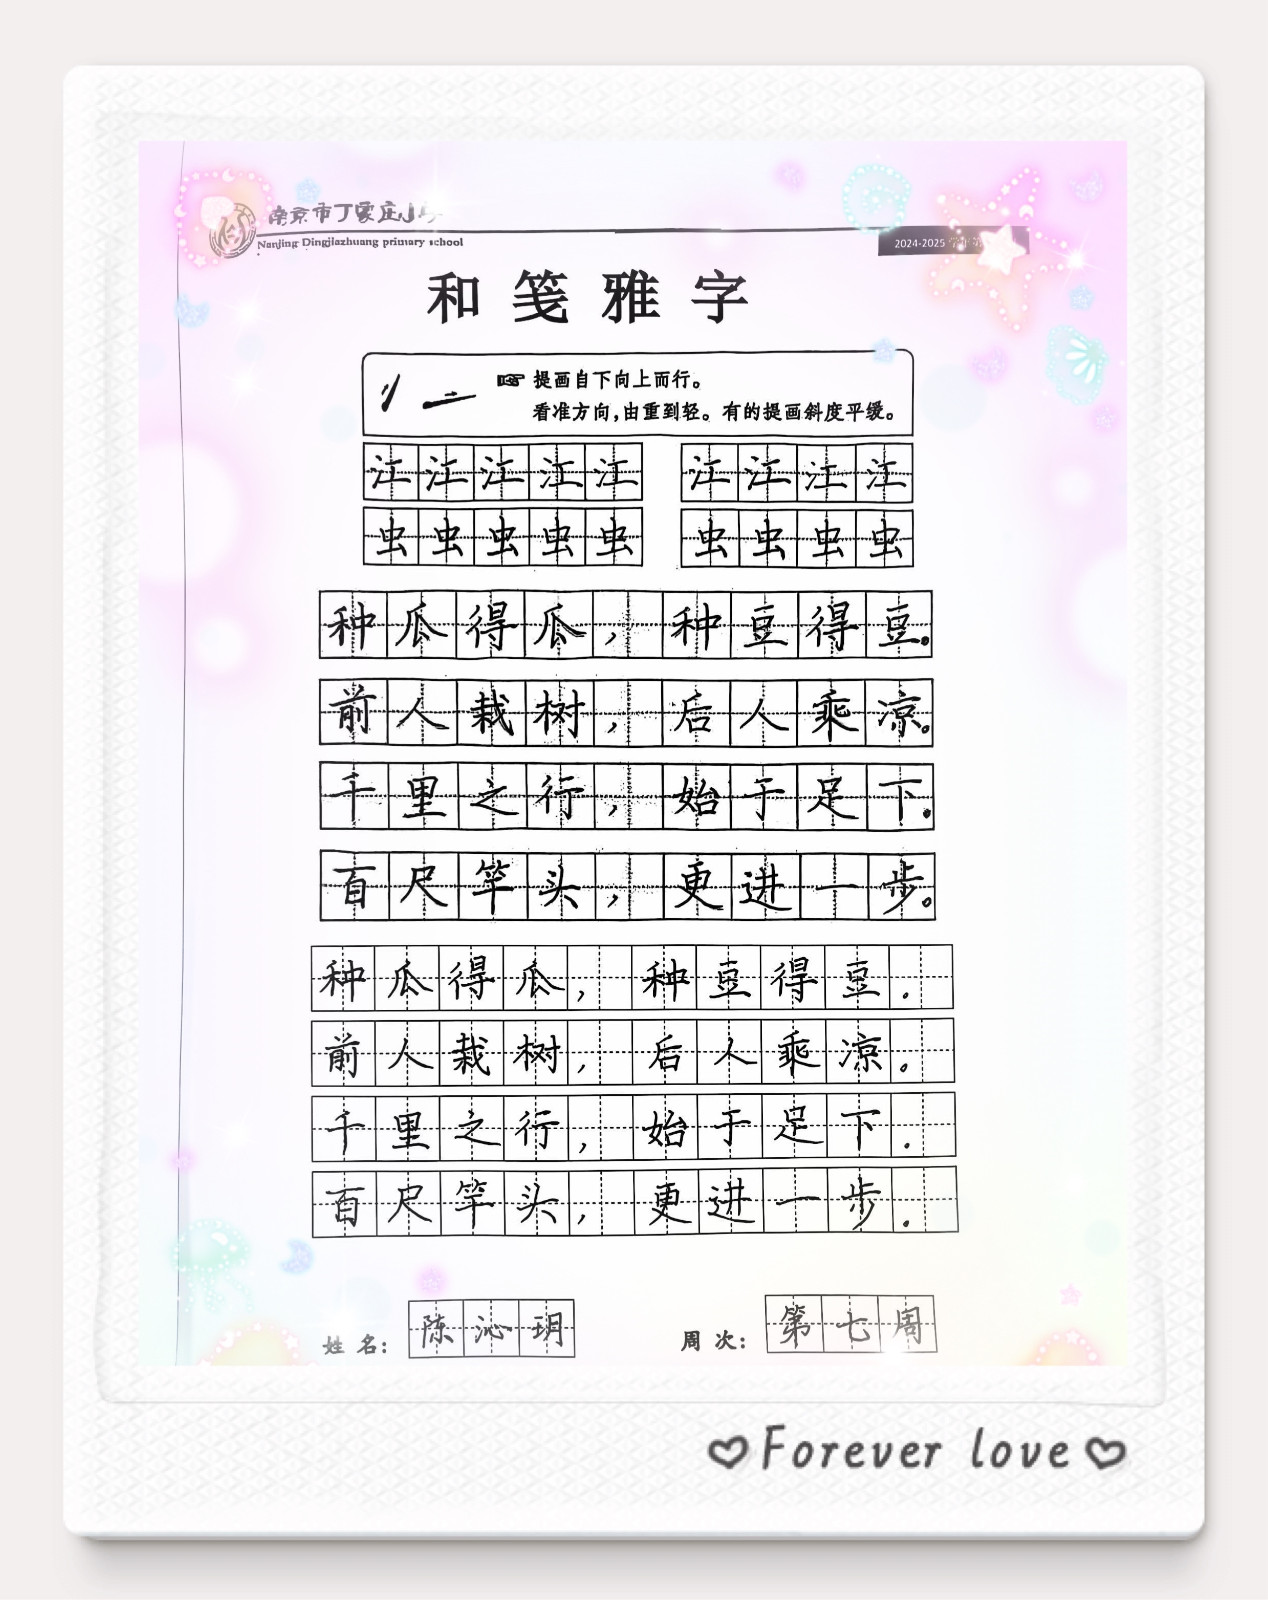 南京市丁家庄小学
Nanjing Dingjiazhuang primary school
2024-2025 学年第
和笺雅字
提画自下向上而行。
看准方向,由重到轻。有的提画斜度平缓。
江江江江江 江江江江
虫虫虫虫虫 虫虫虫虫
种瓜得瓜，种豆得豆。
前人栽树，后人乘凉。
千里之行，始于足下。
百尺竿头，更进一步。
种瓜得瓜，种豆得豆。
前人栽树，后人乘凉。
千里之行，始于足下。
百尺竿头，更进一步。
姓名：陈沁玥 周次：第七周
Forever love